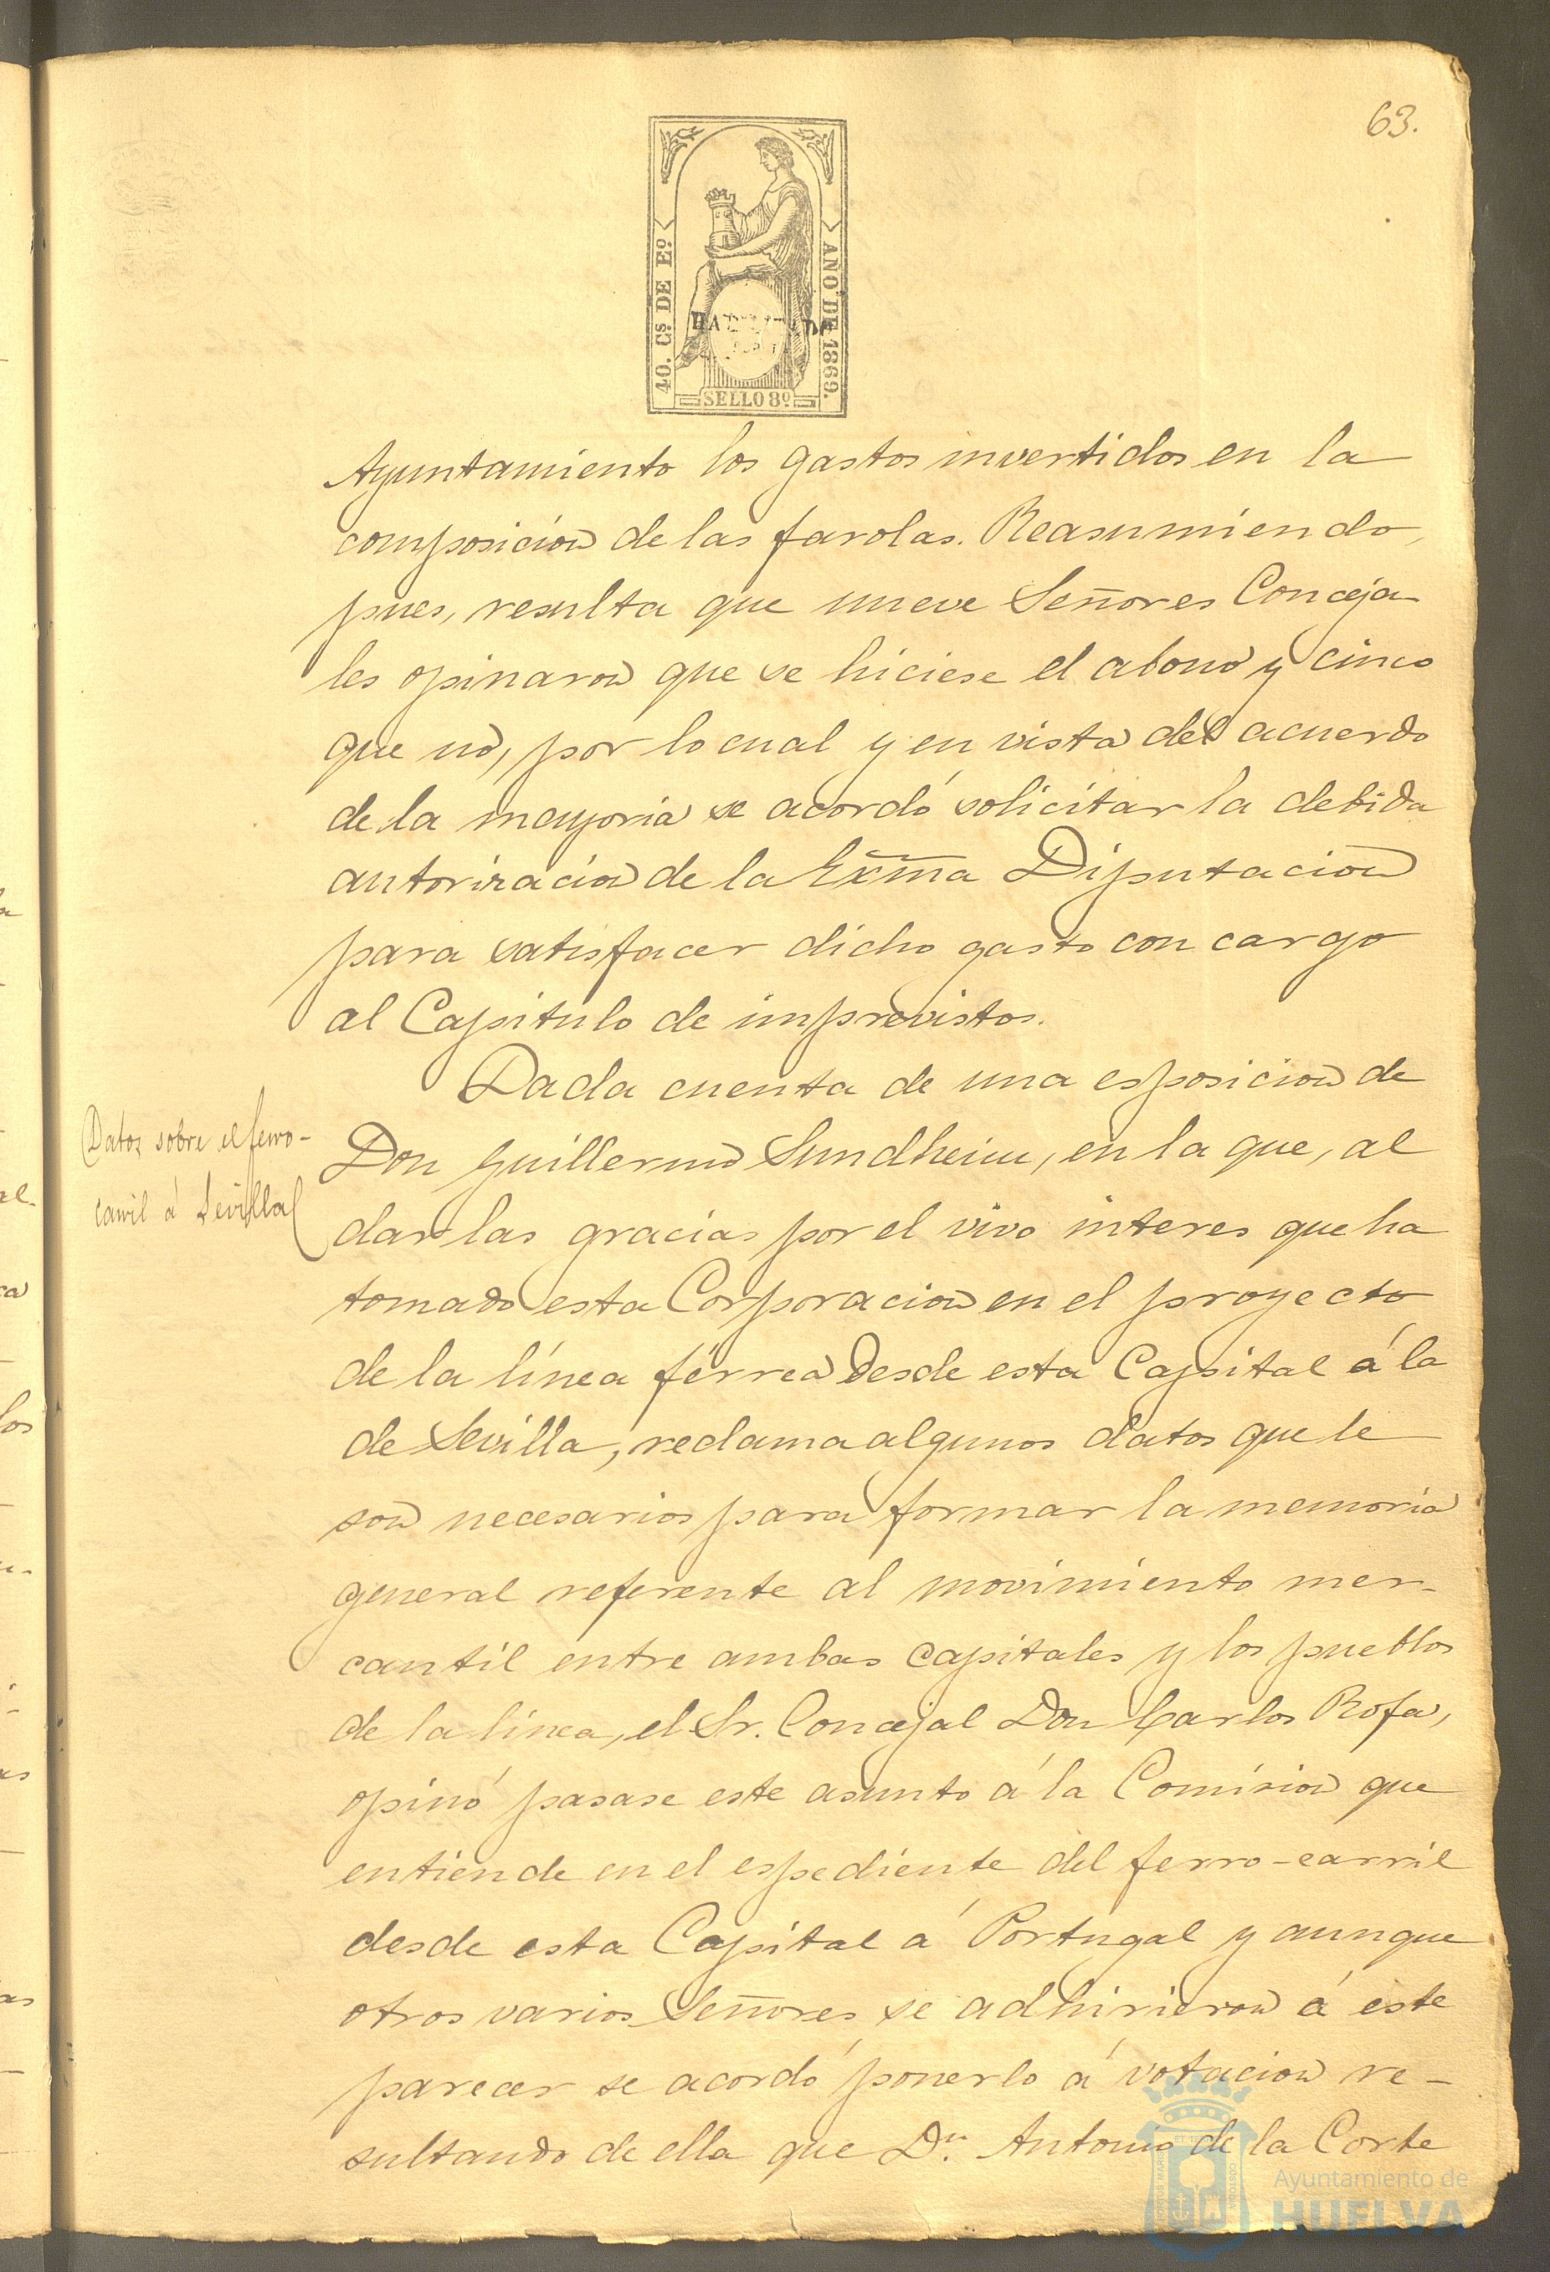 63.
40. Cs. DE Eo.
AÑO DE 1869.
SELLO 8º
Ayuntamiento los gastos invertidos en la
composicion de las farolas. Reasumiendo,
pues, resulta que nueve Señores Conceja-
les opinaron que se hiciese el abono y cinco
que nó, por lo cual y en vista del acuerdo
de la mayoria se acordó solicitar la debida
autorizacion de la Exma Diputacion
para satisfacer dicho gasto con cargo
al Capitulo de imprevistos.
Datos sobre el ferro-
carril á Sevilla
Dada cuenta de una esposicion de
Don Guillermo Sundheim, en la que, al
dar las gracias por el vivo interes que ha
tomado esta Corporacion en el proyecto
de la línea férrea desde esta Capital á la
de Sevilla, reclama algunos datos que le
son necesarios para formar la memoria
general referente al movimiento mer-
cantil entre ambas capitales y los pueblos
de la línea, el Sr. Concejal Don Carlos Rofa,
opinó pasase este asunto á la Comision que
entiende en el espediente del ferro-carril
desde esta Capital á Portugal y aunque
otros varios Señores se adhirieron á este
parecer se acordó ponerlo á votacion re-
sultando de ella que Dn. Antonio de la Corte
Ayuntamiento de
HUELVA